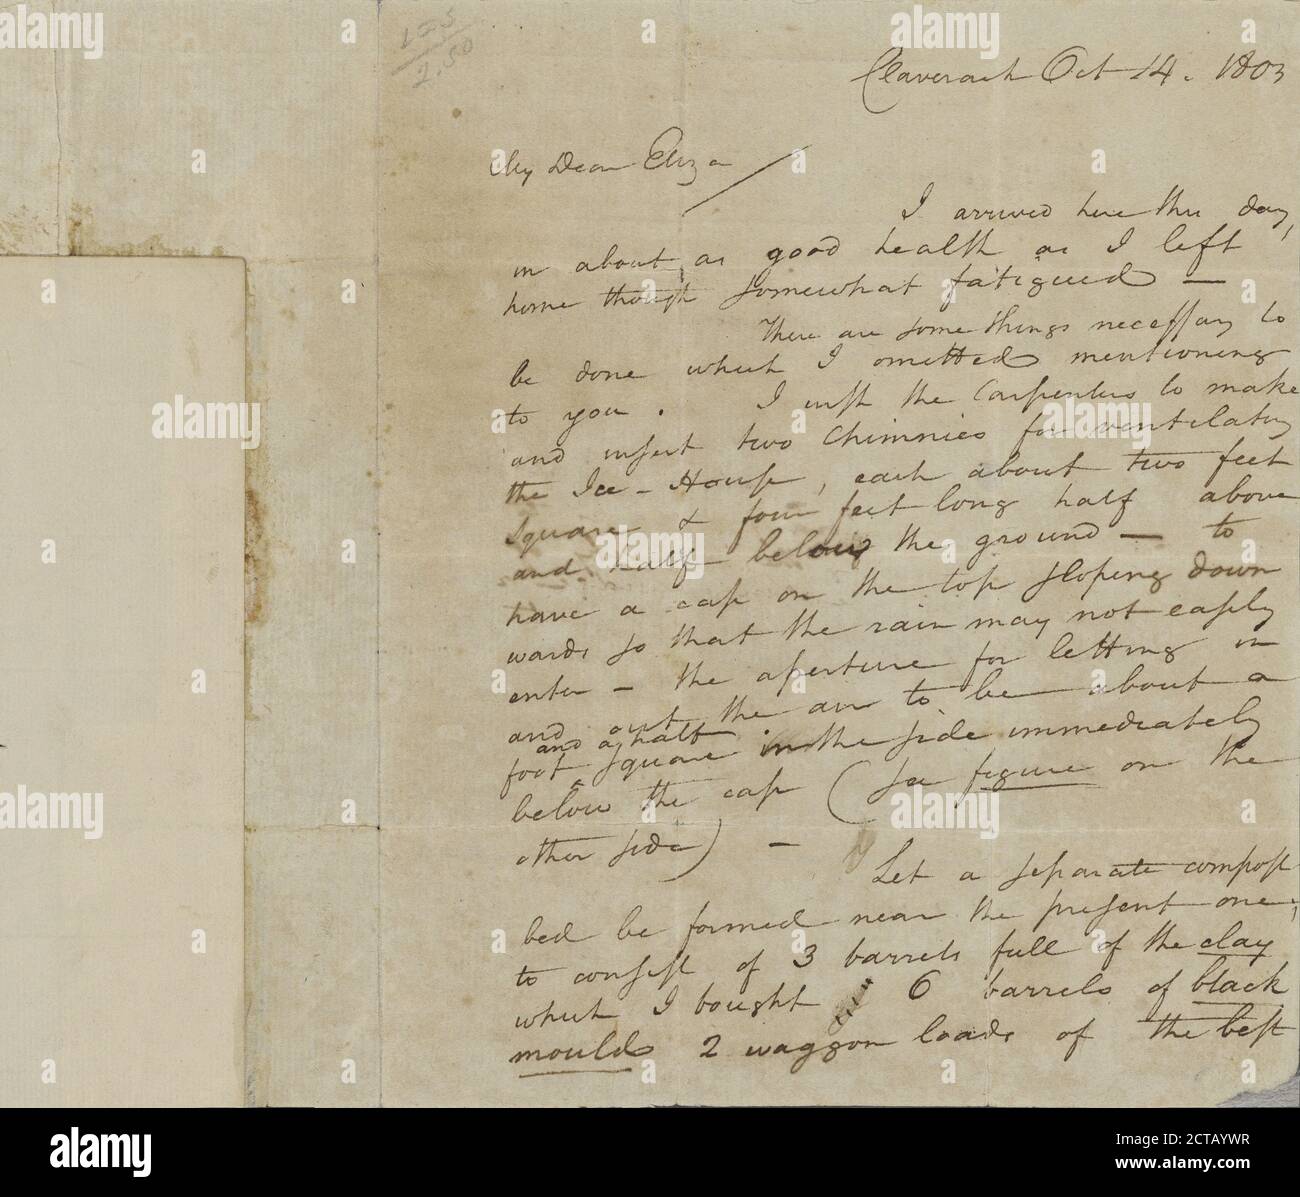 135
2.50
Claverack Oct 14. 1803
My Dear Eliza
I arrived here this day,
in about as good health as I left
home though somewhat fatigued —
There are some things necessary to
be done which I omitted mentioning
to you. I wish the Carpenters to make
and insert two Chimnies for ventilating
the Ice-House, each about two feet
square & four feet long half above
and half below the ground — to
have a cap on the top sloping down
wards so that the rain may not easily
enter — the aperture for letting in
and out the air to be about a
and a half
foot square in the side immediately
below the cap (see figure on the
other side) —
Let a separate compost
bed be formed near the present one;
to consist of 3 barrels full of the clay
which I bought 6 barrels of black
mould 2 waggon loads of the best
alamy
a
Image ID: 2CTAYWR
www.alamy.com